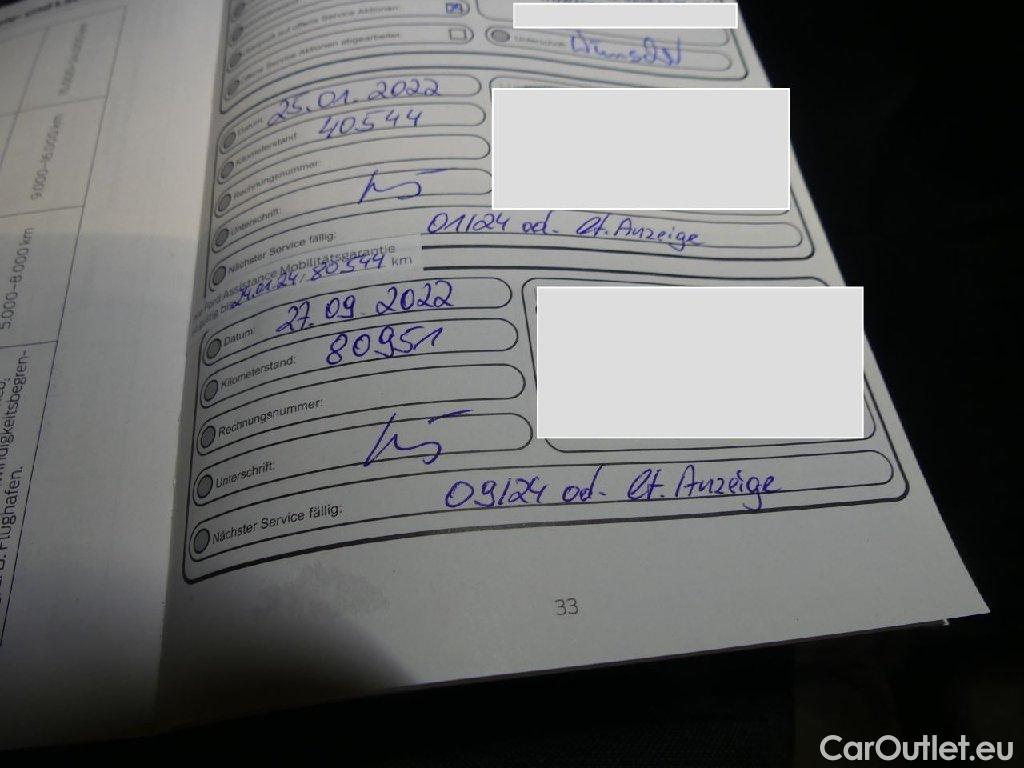 offene Service Aktionen:
offene Service Aktionen abgearbeitet:
Unterschrift:
Datum: 25.01.2022
Kilometerstand: 40544
Rechnungsnummer:
Unterschrift:
Nächster Service fällig: 01/24 od. lt. Anzeige
Ford Assistance Mobilitätsgarantie
24.01.24 / 80544 km
Datum: 27.09.2022
Kilometerstand: 80951
Rechnungsnummer:
Unterschrift:
Nächster Service fällig: 09/24 od. lt. Anzeige
33
9.000–16.000 km
5.000–8.000 km
Flughäfen.
CarOutlet.eu